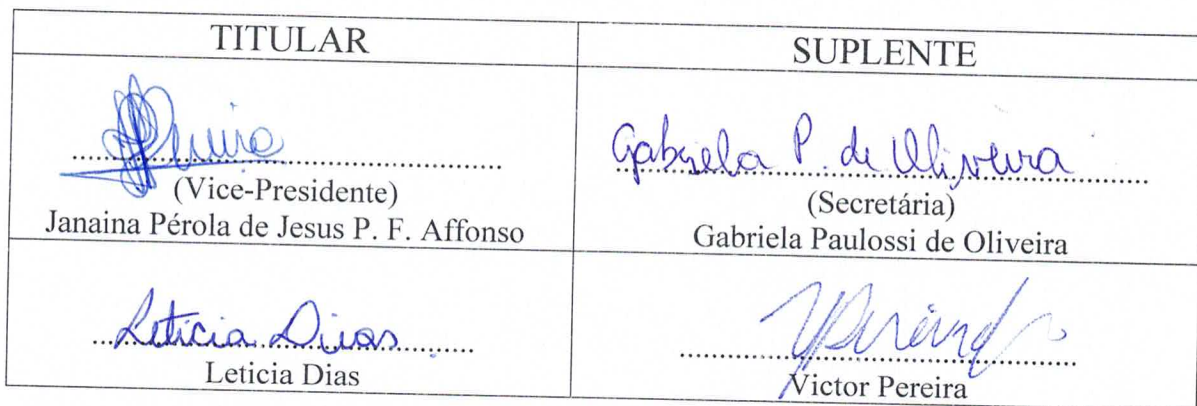 TITULAR
SUPLENTE
(Vice-Presidente)
Janaina Pérola de Jesus P. F. Affonso
Gabriela P. de Oliveira
(Secretária)
Gabriela Paulossi de Oliveira
Leticia Dias
Leticia Dias
Victor Pereira